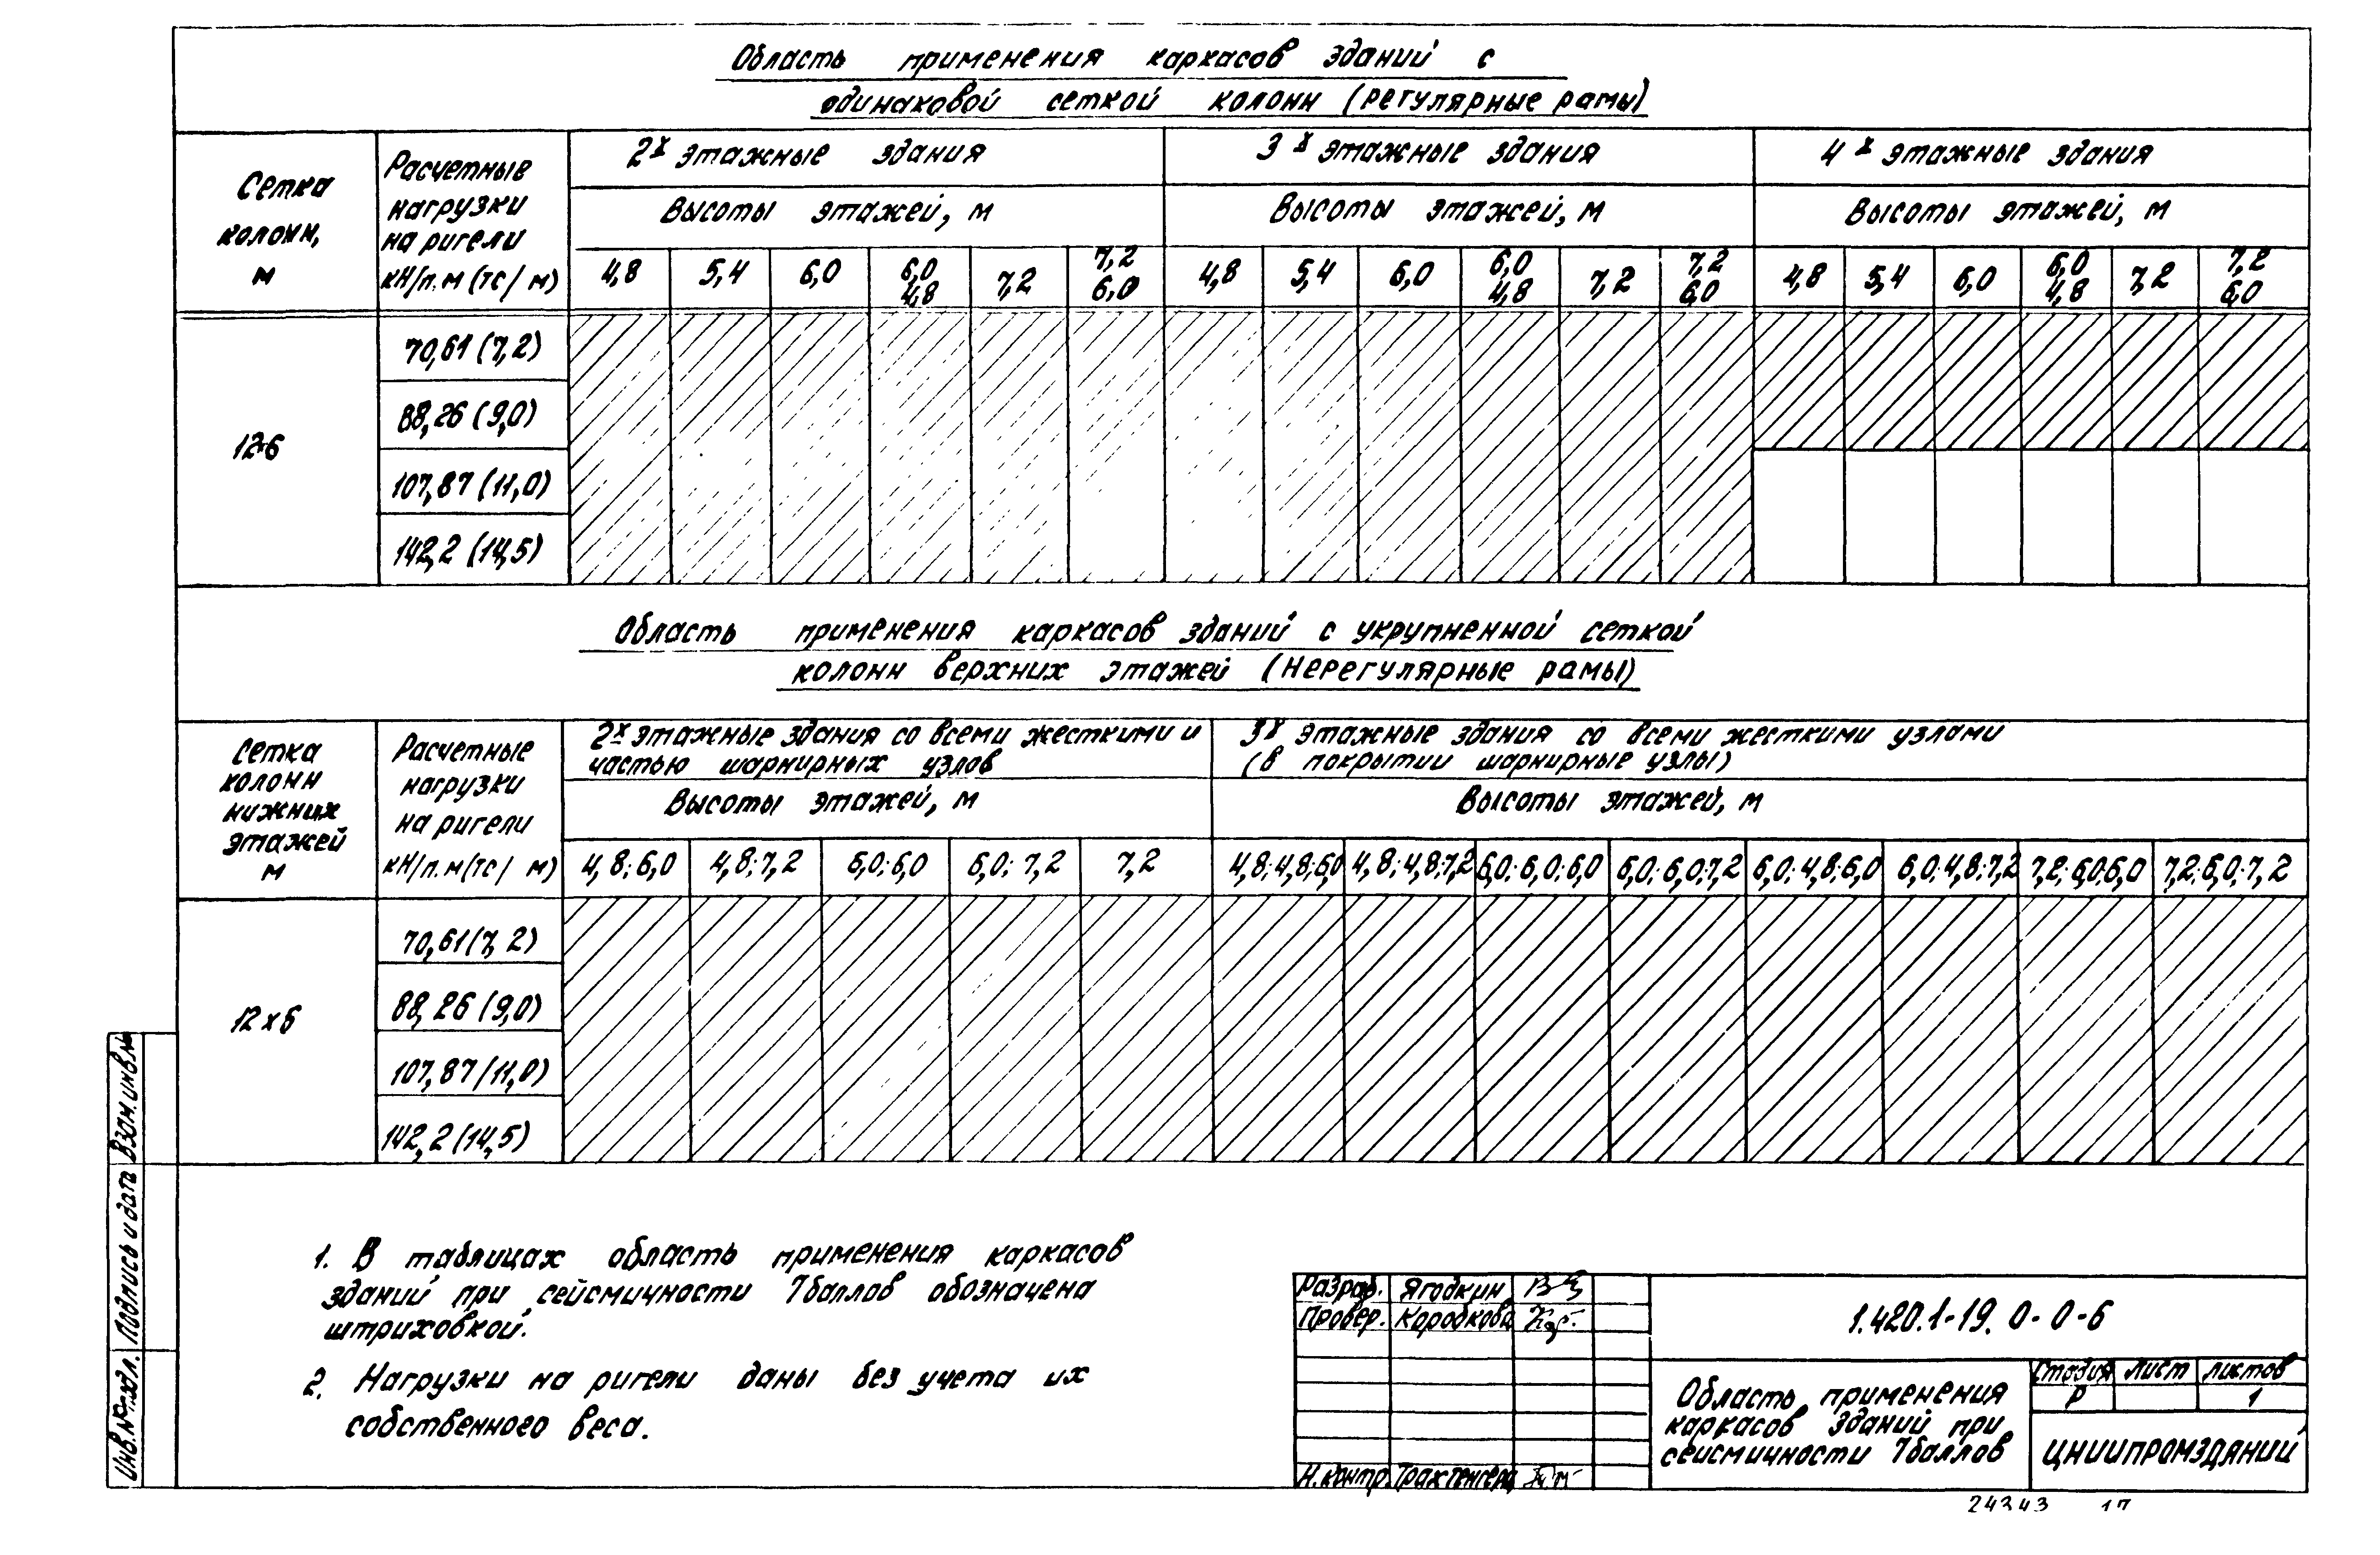 Область применения каркасов зданий с
одинаковой сеткой колонн (регулярные рамы)
Сетка
колонн,
м
Расчетные
нагрузки
на ригели
кН/п.м (тс/м)
2х этажные здания
3х этажные здания
4х этажные здания
Высоты этажей, м
Высоты этажей, м
Высоты этажей, м
4,8 5,4 6,0 6,0 4,8 7,2 7,2 6,0
4,8 5,4 6,0 6,0 4,8 7,2 7,2 6,0
4,8 5,4 6,0 6,0 4,8 7,2 7,2 6,0
12×6
70,61 (7,2)
88,26 (9,0)
107,87 (11,0)
142,2 (14,5)
Область применения каркасов зданий с укрупненной сеткой
колонн верхних этажей (нерегулярные рамы)
Сетка
колонн
нижних
этажей
м
Расчетные
нагрузки
на ригели
кН/п.м(тс/ м)
2х этажные здания со всеми жесткими и
частью шарнирных узлов
3х этажные здания со всеми жесткими узлами
(в покрытии шарнирные узлы)
Высоты этажей, м
Высоты этажей, м
4,8; 6,0 4,8; 7,2 6,0; 6,0 6,0; 7,2 7,2
4,8; 4,8; 6,0 4,8; 4,8; 7,2 6,0; 6,0; 6,0 6,0; 6,0; 7,2 6,0; 4,8; 6,0 6,0; 4,8; 7,2 7,2; 6,0; 6,0 7,2; 6,0; 7,2
12 х 6
70,61 (7,2)
88,26 (9,0)
107,87 (11,0)
142,2 (14,5)
1. В таблицах область применения каркасов
зданий при сейсмичности 7баллов обозначена
штриховкой.
2. Нагрузки на ригели даны без учета их
собственного веса.
Инв.№подл. Подпись и дата Взам.инв.№
Разраб. Ягодкин
Провер. Коробкова
Н.контр. Трахтенгерц
1.420.1-19. 0-0-6
Область применения
каркасов зданий при
сейсмичности 7баллов
Стадия Лист Листов
Р 1
ЦНИИПРОМЗДАНИЙ
24343 17